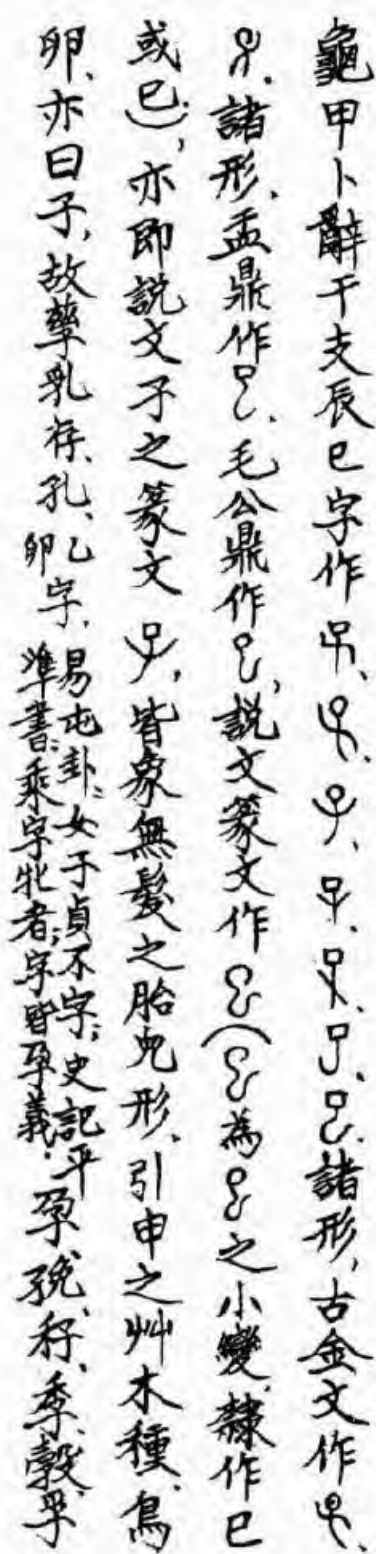 龜甲卜辭干支辰巳字作諸形，古金文作
諸形，盂鼎作，毛公鼎作，說文篆文作（為之小變，隸作巳
或巳），亦即說文子之篆文，皆象無髮之胎兒形，引申之艸木種、鳥
卵，亦曰子，故孳乳存、孔、乙字、卵 易屯卦：女子貞不字；史記平準書：乘字牝者；字皆孕義．孕、㝃、秄、季、㝅、孚